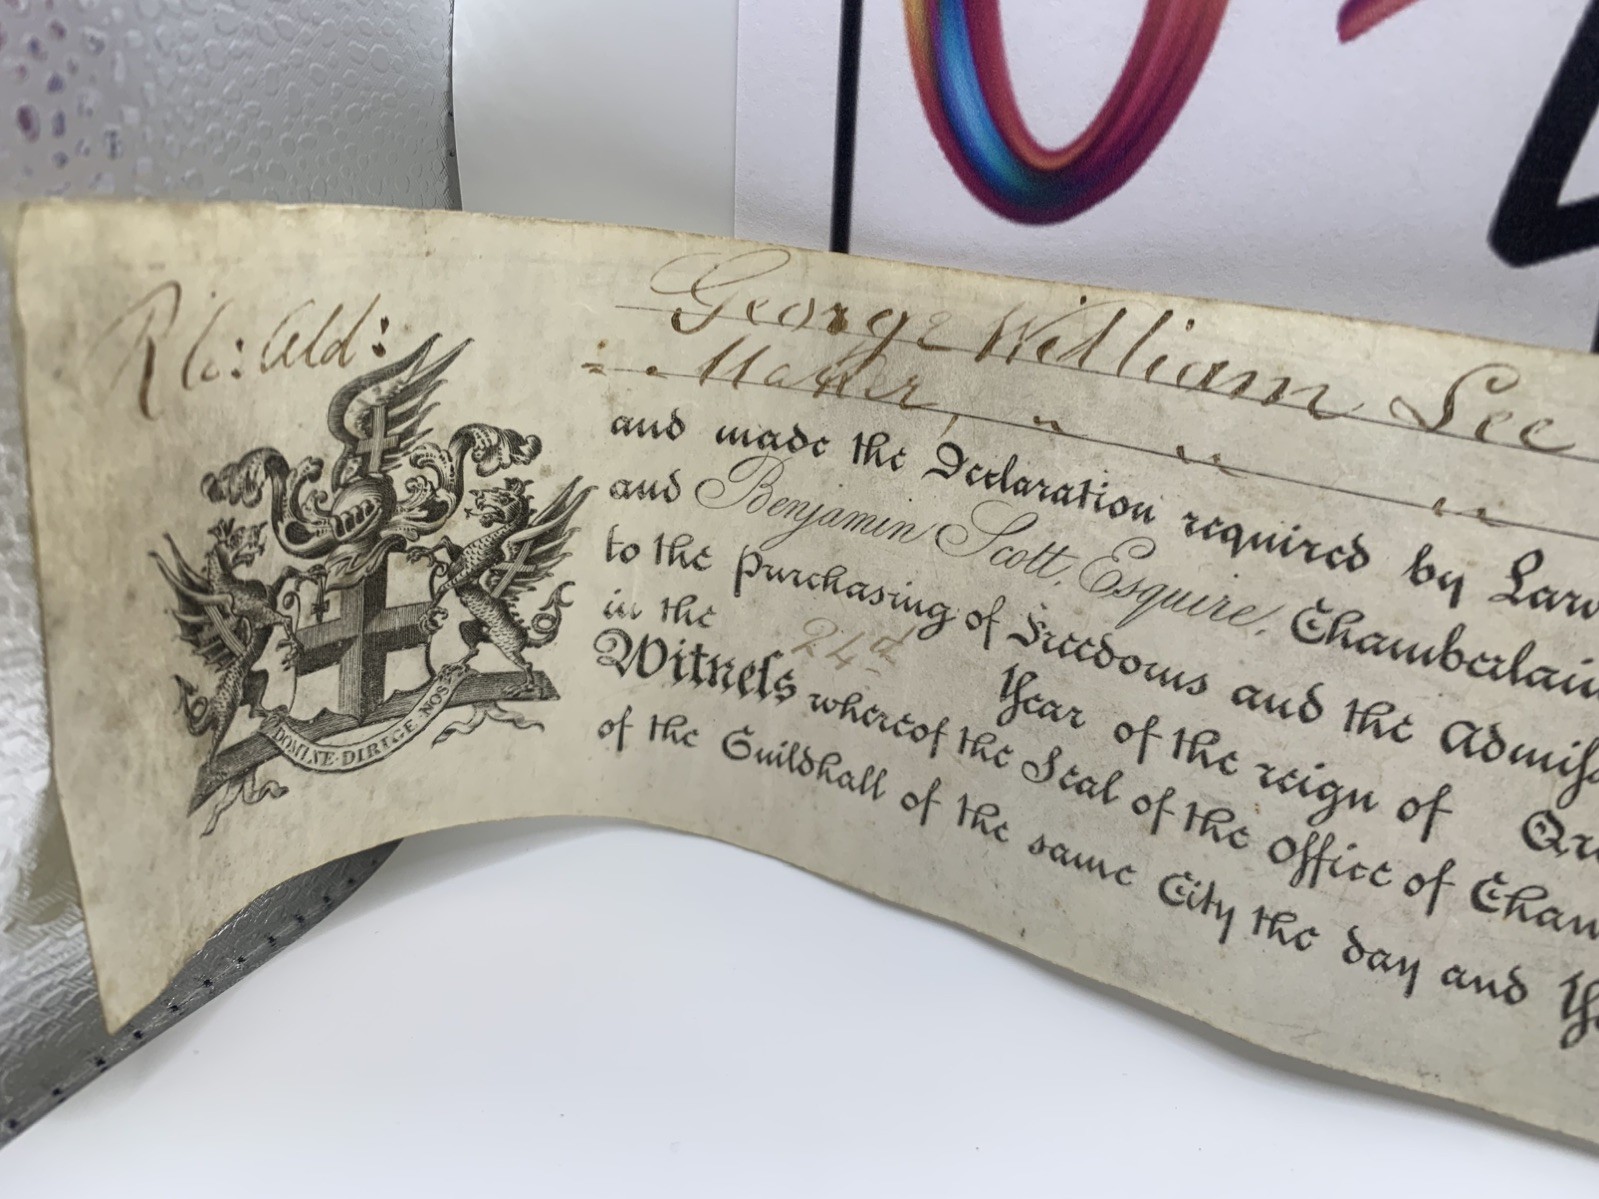 R Co: Ald:
George William Lee
= Maker,
and made the Declaration required by Law
and Benjamin Scott, Esquire, Chamberlain
to the Purchasing of Freedoms and the Admiss
in the 24th Year of the reign of Qu
Witness whereof the Seal of the Office of Cham
of the Guildhall of the same City the day and
DOMINE DIRIGE NOS